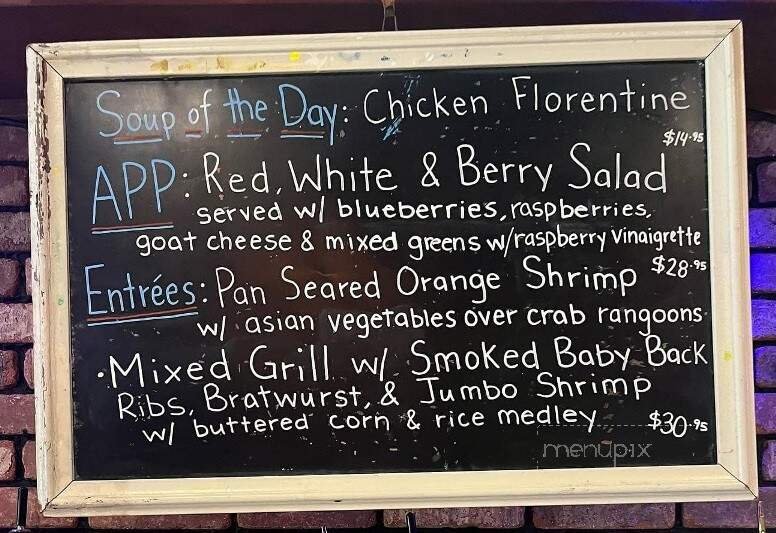 Soup of the Day: Chicken Florentine
$14.95
APP: Red, White & Berry Salad
served w/ blueberries, raspberries,
goat cheese & mixed greens w/ raspberry Vinaigrette
Entrées: Pan Seared Orange Shrimp $28.95
w/ asian vegetables over crab rangoons
•Mixed Grill w/ Smoked Baby Back
Ribs, Bratwurst, & Jumbo Shrimp
w/ buttered corn & rice medley $30.95
menupix